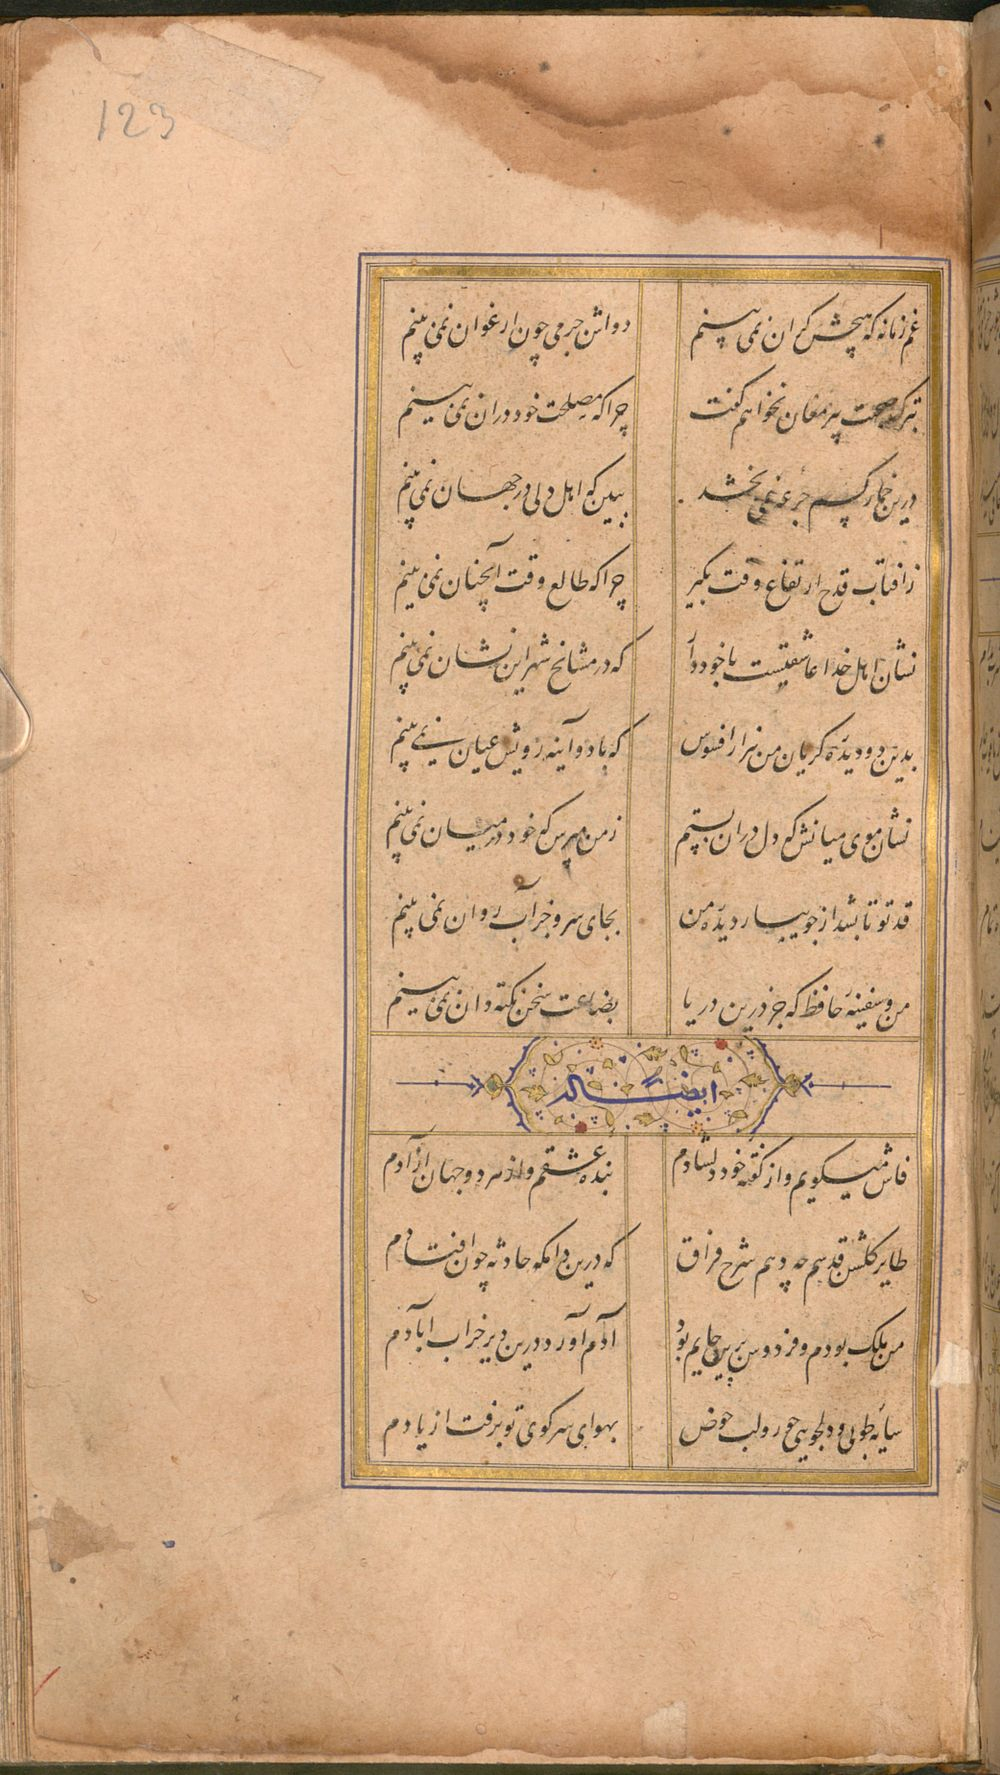 123
غم زمانه که هیچش کران نمی بینم دواش جز می چون ارغوان نمی بینم
بترک صحبت پیر مغان نخواهم گفت چرا که مصلحت خود دران نمی بینم
درین خمار کسم جرعه نمی بخشد ببین که اهل دلی در جهان نمی بینم
ز افتاب قدح ارتفاع وقت بگیر چرا که طالع وقت آنچنان نمی بینم
نشان اهل خدا عاشقیست با خود دار که در مشایخ شهر این نشان نمی بینم
بدین دو دیده گریان من هزار افسوس که با دو آینه رویش عیان نمی بینم
نشان موی میانش که دل دران بستم ز من مپرس که خود در میان نمی بینم
قد تو تا بشد از جویبار دیده من بجای سرو جز آب روان نمی بینم
من و سفینه حافظ که جز درین دریا بضاعت سخن نکته دان نمی بینم
ایضا له
فاش میگویم و از گفته خود دلشادم بنده عشقم و از هر دو جهان آزادم
طایر گلشن قدسم چه دهم شرح فراق که درین دامگه حادثه چون افتادم
من ملک بودم و فردوس برین جایم بود آدم آورد درین دیر خراب ابادم
سایه طوبی و دلجویی حور و لب حوض بهوای سر کوی تو برفت از یادم